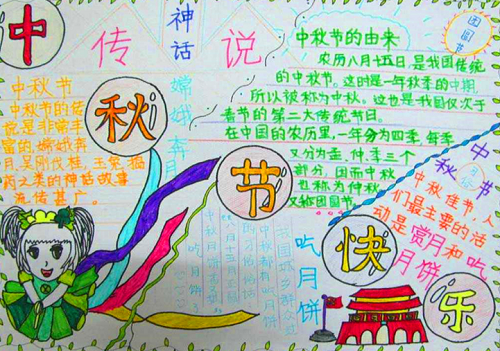 中
秋
节
快
乐
神话
传说
嫦娥奔月
中秋节
中秋节的传
说是非常丰
富的,嫦娥奔
月,吴刚伐桂,玉兔捣
药之类的神话故事
流传甚广。
中秋节的由来
农历八月十五日,是我国传统
的中秋节。这时是一年秋季的中期,
所以被称为中秋。这也是我国仅次于
春节的第二大传统节日。
在中国的农历里,一年分为四季,每季
又分为孟、仲、季三个
部分,因而中秋
也称为仲秋
又称团圆节。
团圆节
中秋节
中秋佳节,人
们最主要的活
动是赏月和吃
月饼
吃月饼